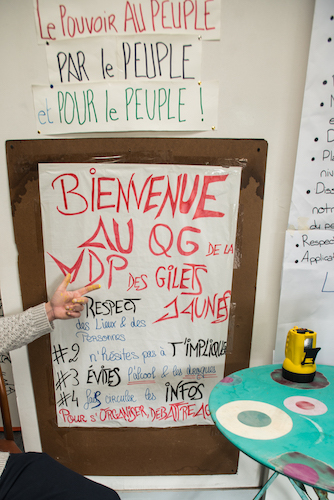 Le Pouvoir AU PEUPLE
PAR le PEUPLE
et POUR le PEUPLE !
BIENVENUE
AU QG DE LA
VDP DES GILETS
JAUNES
RESPECT
des Lieux & des
Personnes
#2 n'hésites pas à T'IMPLIQUER
#3 ÉVITES l'alcool & les drogues
#4 circuler les INFOS
POUR S'ORGANISER, DÉBATTRE
Respe
Applica